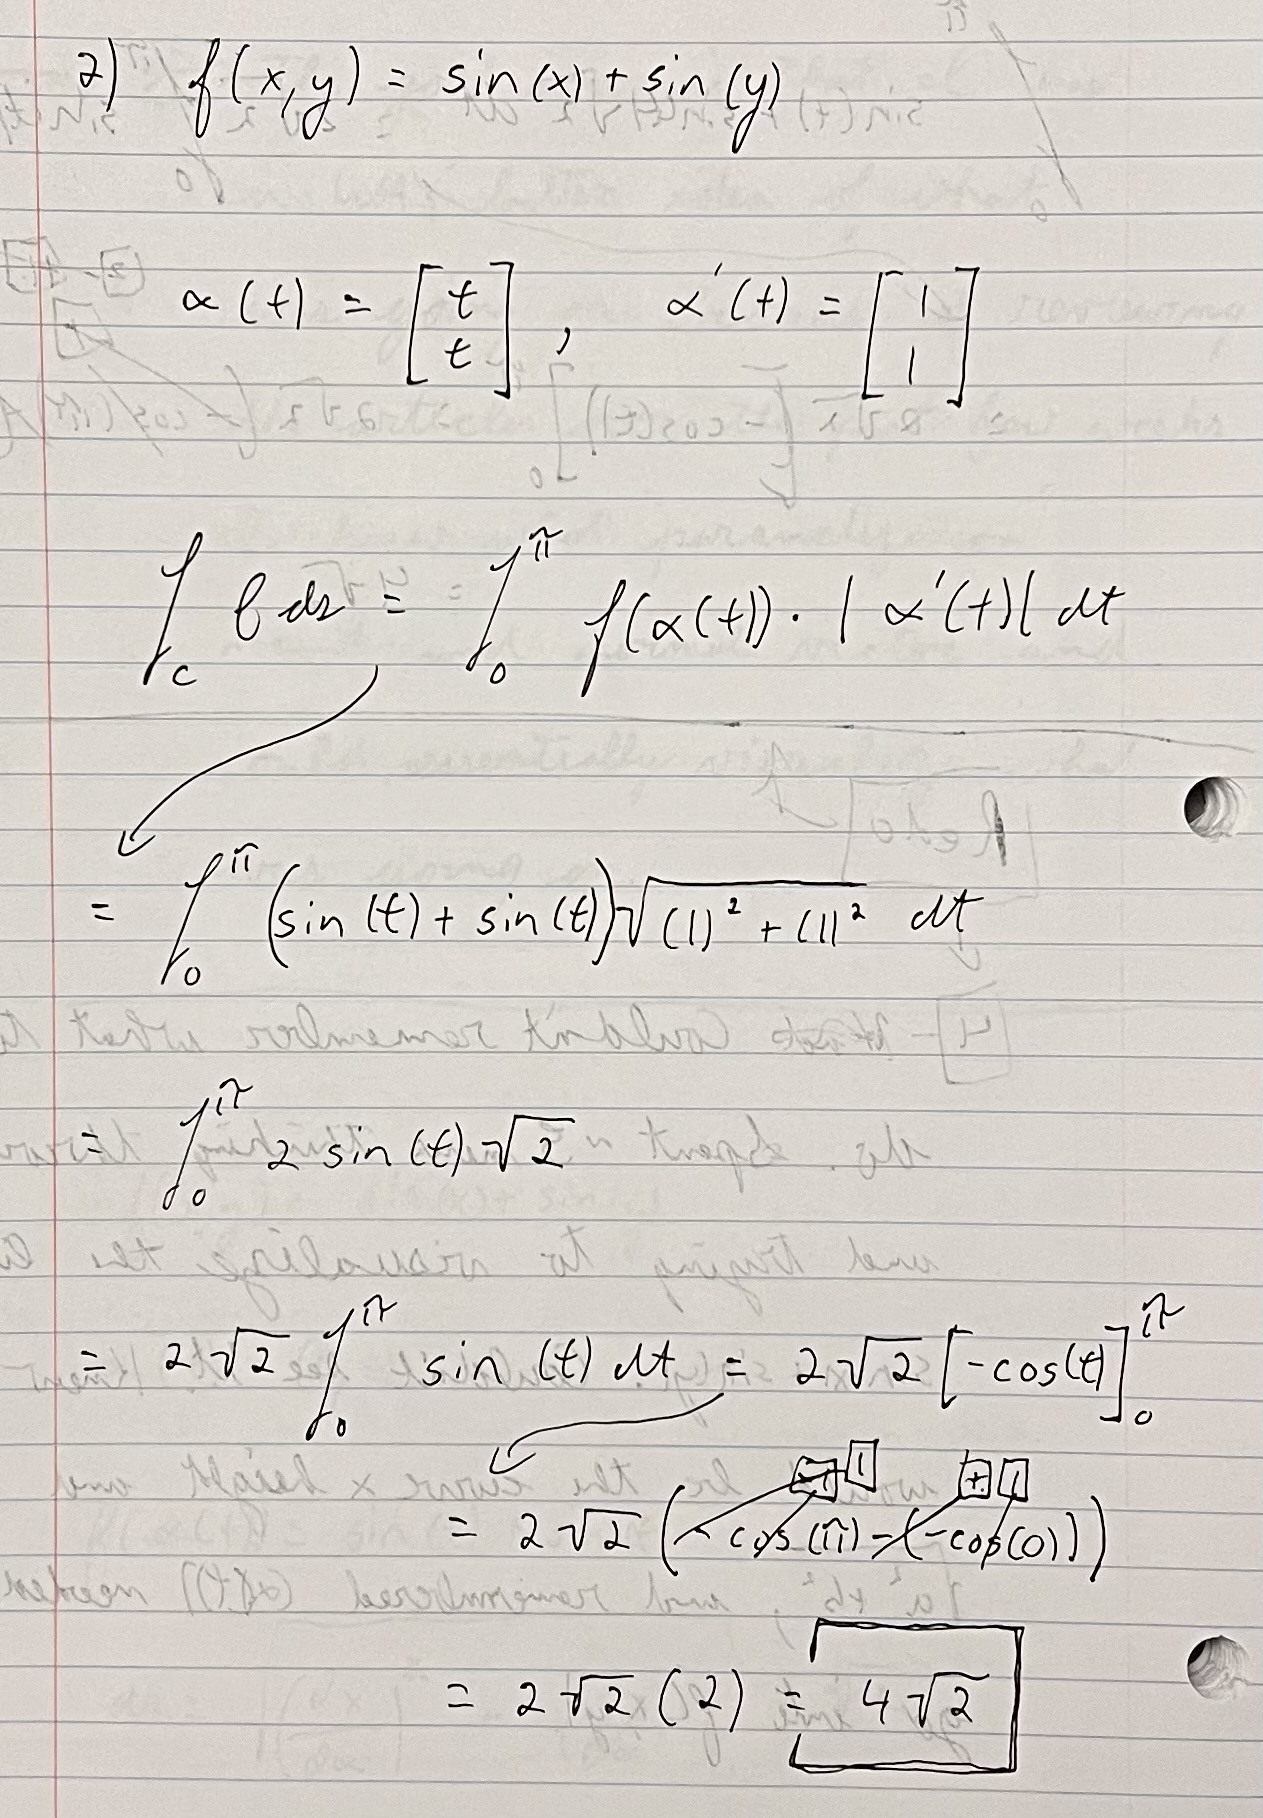 2) f(x,y) = sin(x) + sin(y)
α(t) = [t t], α'(t) = [1 1]
∫_C f ds = ∫_0^π f(α(t)) · |α'(t)| dt
= ∫_0^π (sin(t) + sin(t)) √((1)² + (1)²) dt
= ∫_0^π 2 sin(t) √2
= 2√2 ∫_0^π sin(t) dt = 2√2 [-cos(t)]_0^π
1 + 1
= 2√2 (-cos(π) - (-cos(0)))
= 2√2 (2) = 4√2